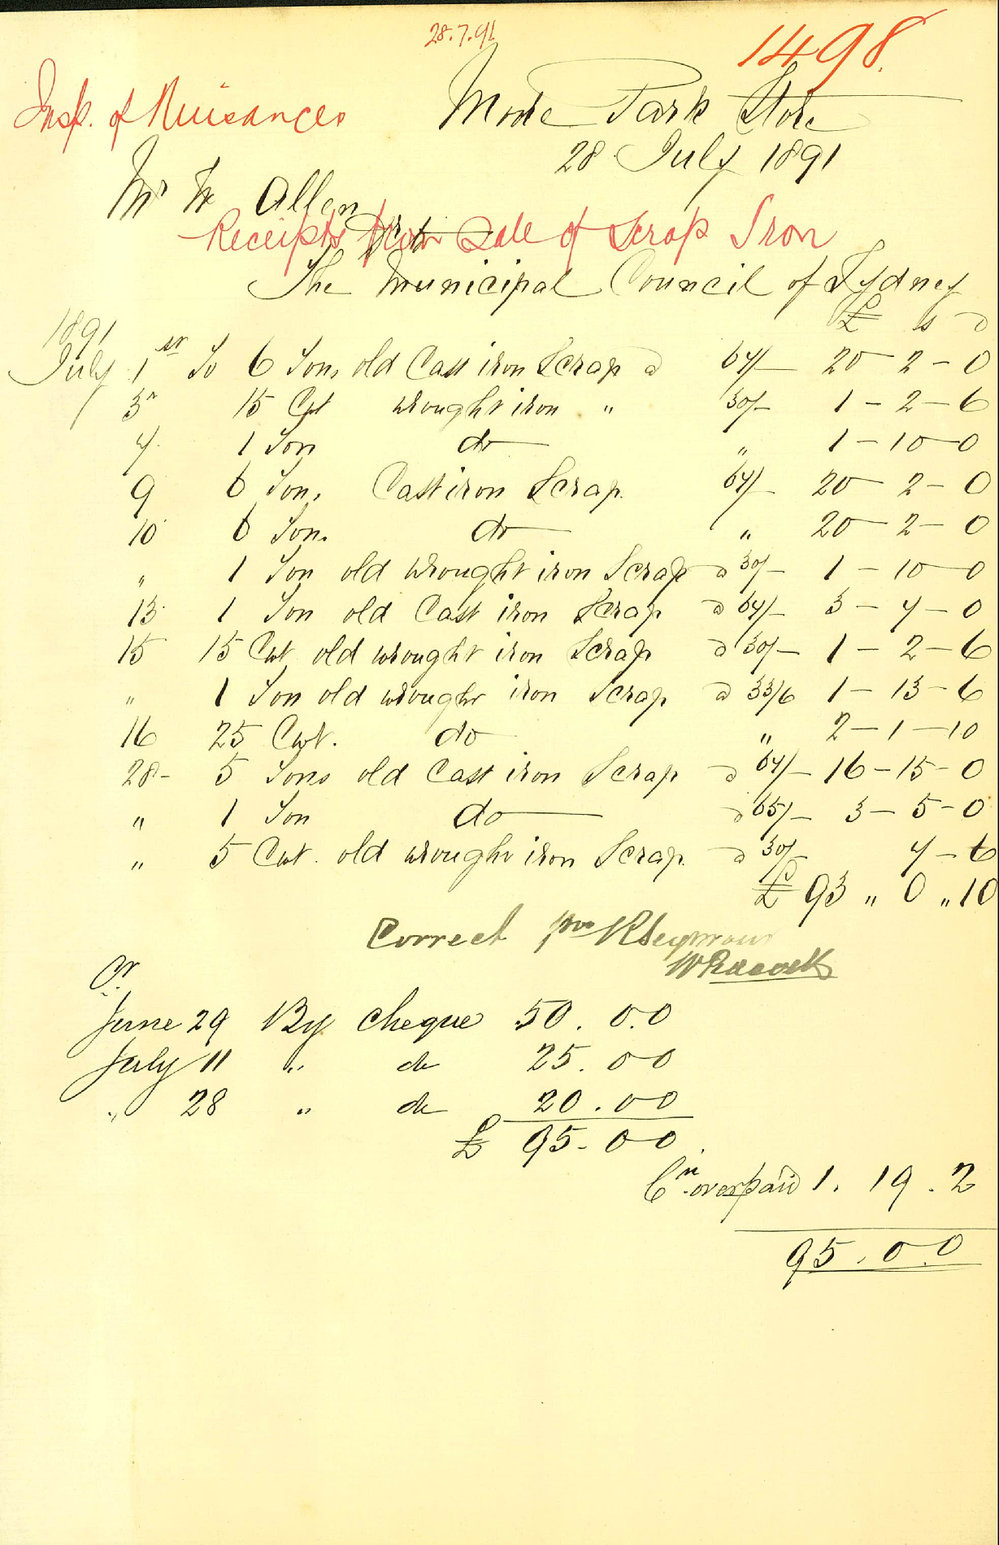 28.7.91
1498.
Insp. of Nuisances
Moore Park Store
28 July 1891
Mr W Allen
Receipts from Sale of Scrap Iron
Dr to
The Municipal Council of Sydney
£ s d
1891
July 1st To 6 Tons old Cast iron Scrap @ 67/- 20-2-0
3rd 15 Cwt wrought iron " 30/- 1-2-6
4 1 Ton do " 1-10-0
9 6 Tons Cast iron Scrap 67/- 20-2-0
10 6 Tons do " 20-2-0
" 1 Ton old wrought iron Scrap @ 30/- 1-10-0
13 1 Ton old Cast iron Scrap @ 64/- 3-4-0
15 15 Cwt old wrought iron Scrap @ 30/- 1-2-6
" 1 Ton old wrought iron Scrap @ 33/6 1-13-6
16 25 Cwt. do " 2-1-10
28- 5 Tons old Cast iron Scrap @ 67/- 16-15-0
" 1 Ton do @ 65/- 3-5-0
" 5 Cwt. old wrought iron Scrap @ 30/ 7-6
£ 93 " 0 " 10
Correct R Seymour
W Peacock
Cr.
June 29 By cheque 50.0.0
July 11 " do 25.00
" 28 " do 20.00
£ 95-00
overpaid 1.19.2
95.0.0